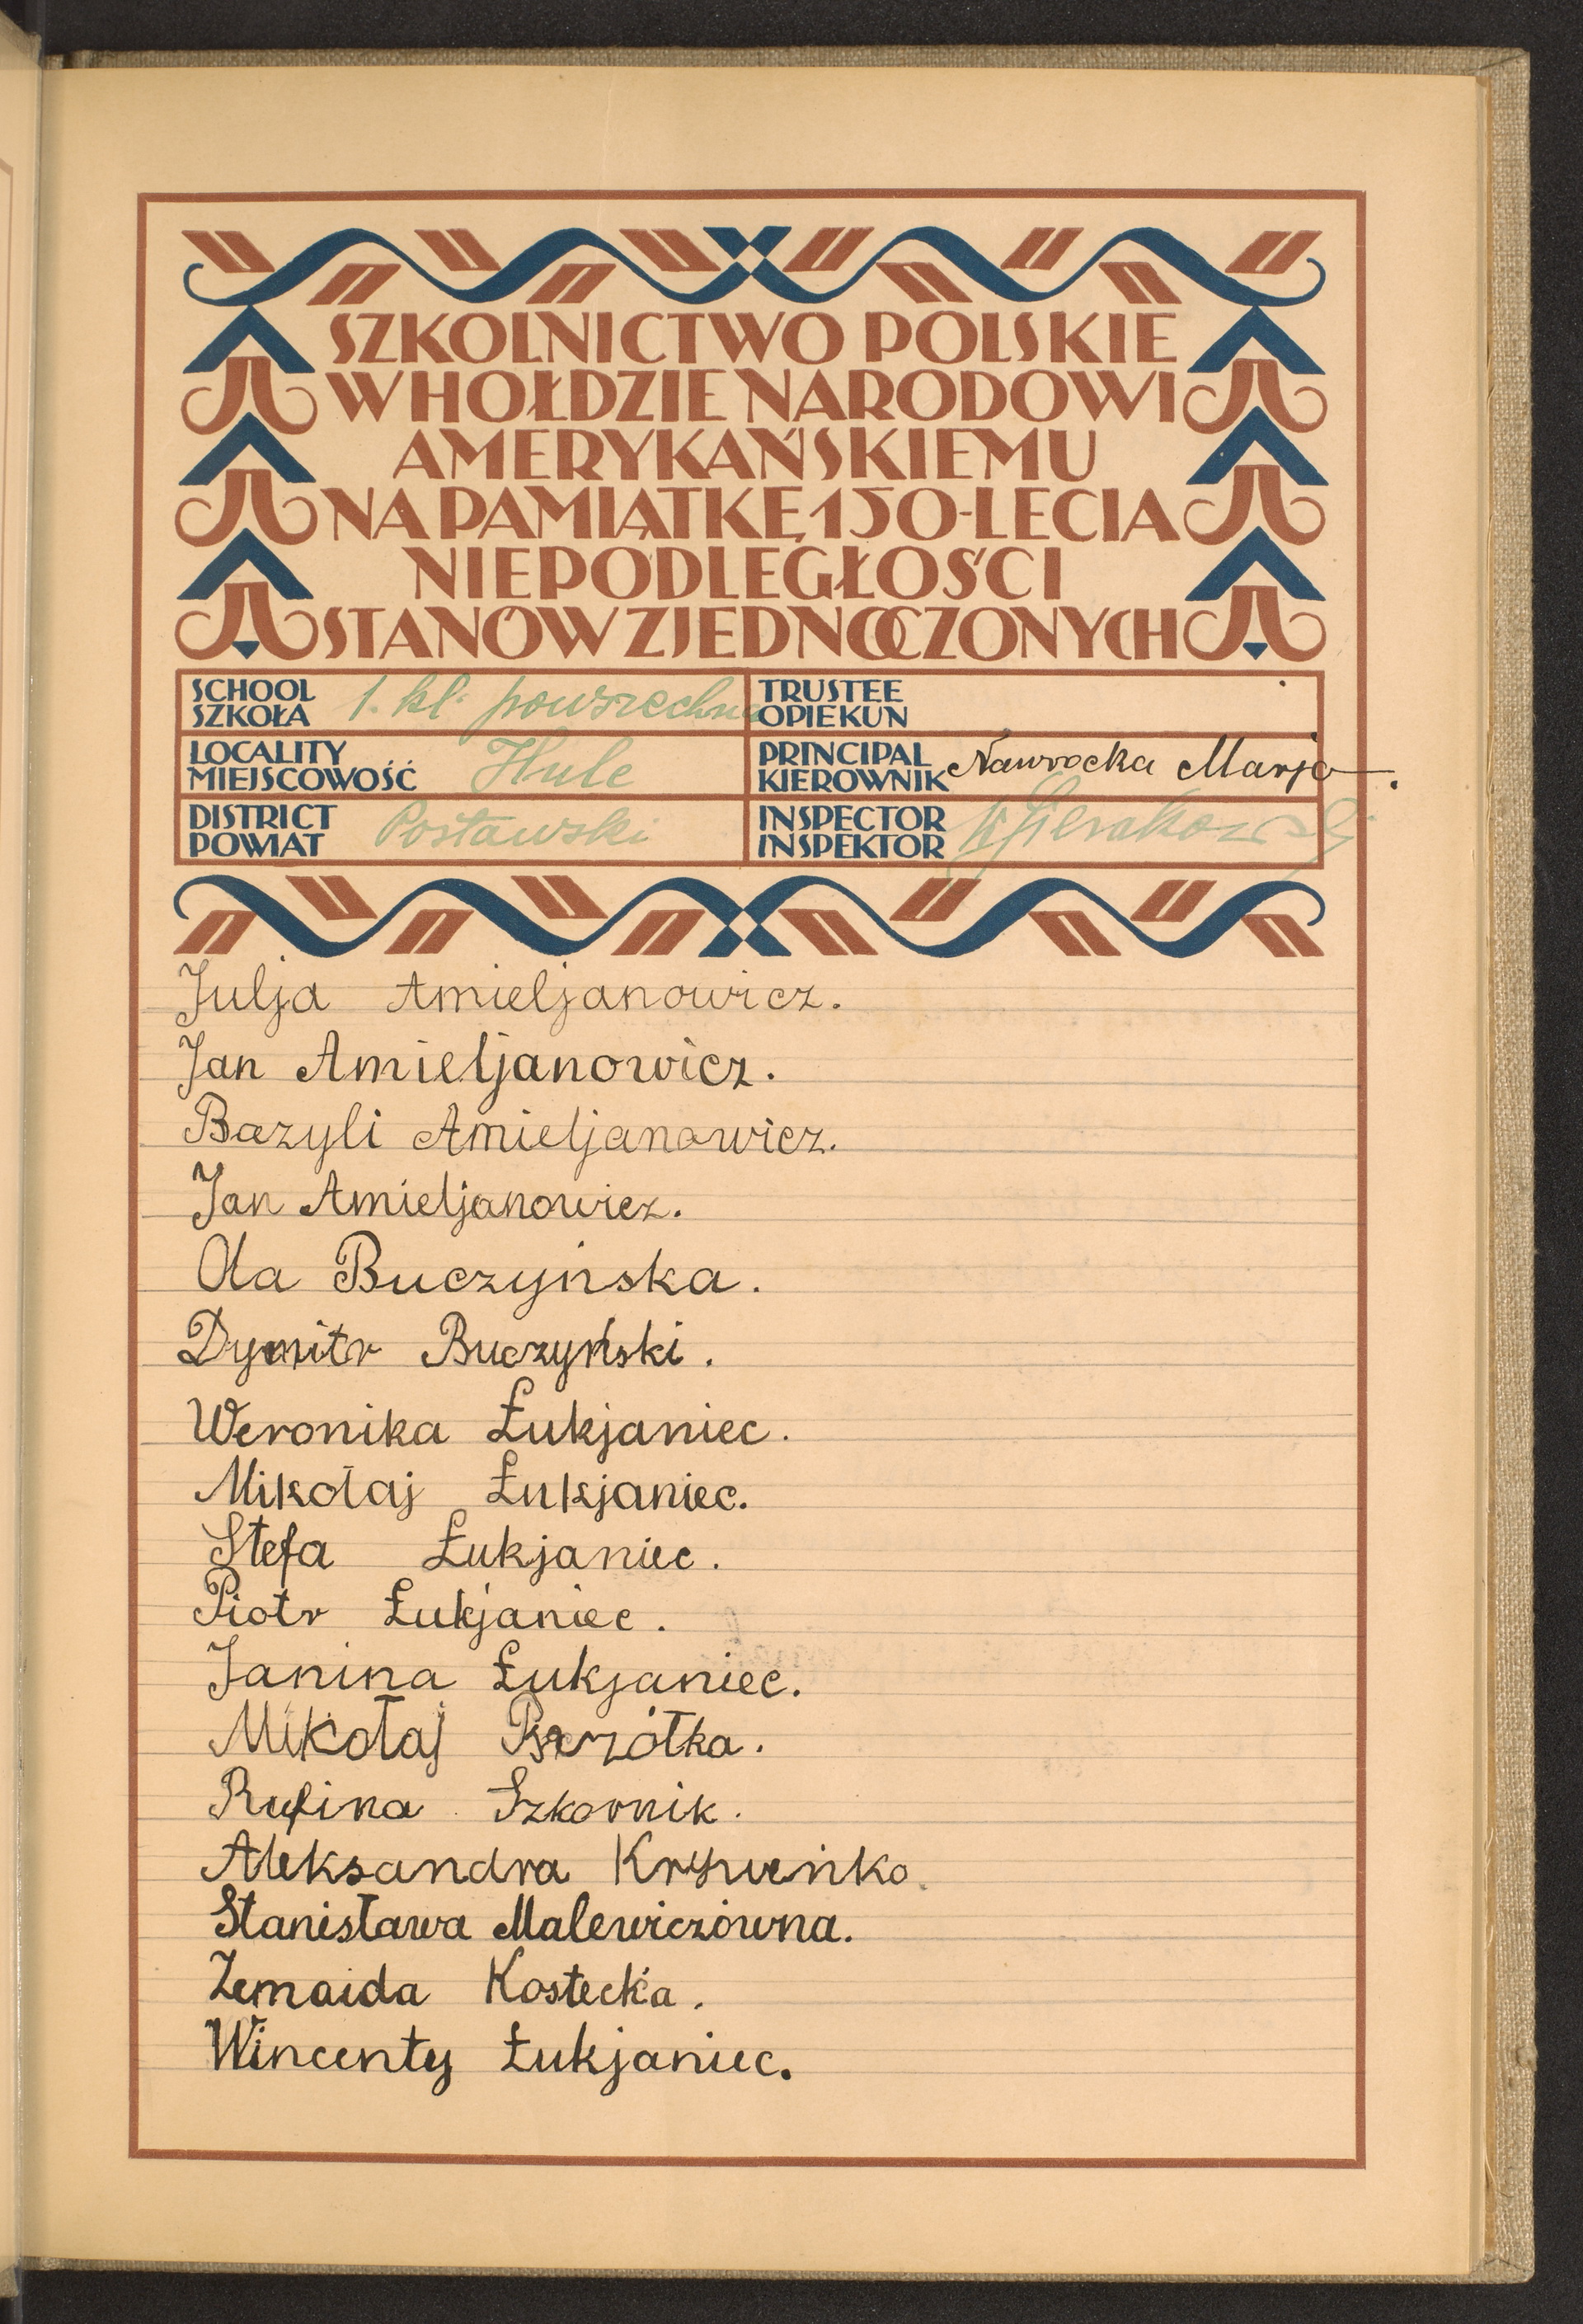 SZKOLNICTWO POLSKIE
W HOŁDZIE NARODOWI
AMERYKAŃSKIEMU
NA PAMIĄTKĘ 150-LECIA
NIEPODLEGŁOŚCI
STANÓW ZJEDNOCZONYCH
SCHOOL
SZKOŁA 1. kl. powszechna
TRUSTEE
OPIEKUN
LOCALITY
MIEJSCOWOŚĆ Hule
PRINCIPAL
KIEROWNIK Nawrocka Marja.
DISTRICT
POWIAT Postawski
INSPECTOR
INSPEKTOR
Julja Amieljanowicz.
Jan Amieljanowicz.
Bazyli Amieljanowicz.
Jan Amieljanowicz.
Ola Buczyńska.
Dymitr Buczyński.
Weronika Łukjaniec.
Mikołaj Łukjaniec.
Stefa Łukjaniec.
Piotr Łukjaniec.
Janina Łukjaniec.
Mikołaj Pszczółka.
Rufina Szkornik.
Aleksandra Kryweńko.
Stanisława Malewiczówna.
Zemaida Kostecka.
Wincenty Łukjaniec.